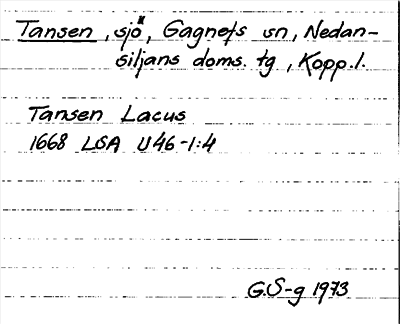 Tansen, sjö, Gagnefs sn, Nedan-
siljans doms. tg, Kopp.l.
Tansen Lacus
1668 LSA U46-1:4
G.S-g 1973